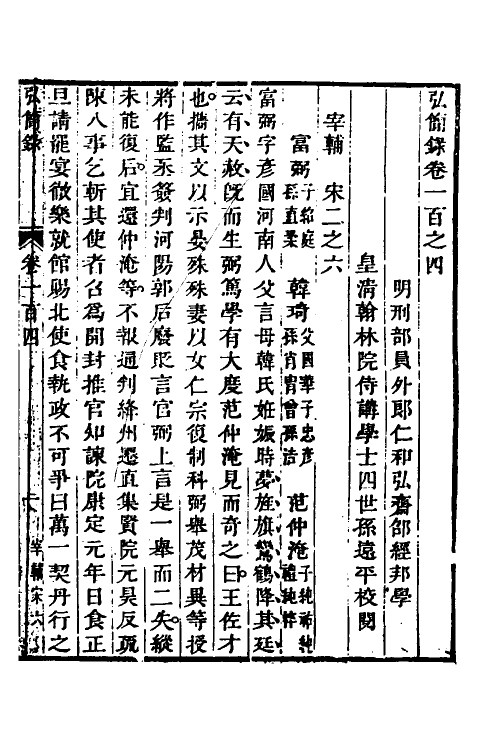 弘簡錄卷一百之四
明刑部員外郎仁和弘齋邵經邦學
皇清翰林院侍講學士四世孫遠平校閱
宰輔 宋二之六
富弼 子紹庭 孫直柔 韓琦 父國華 子忠彥 孫肖冑 曾孫浩 范仲淹 子純祐 純禮 純粹
富弼字彥國河南人父言母韓氏姙娠時夢旌旗鶯鶴降其廷
云有天赦旣而生弼篤學有大度范仲淹見而奇之曰王佐才
也攜其文以示晏殊殊妻以女仁宗復制科弼舉茂材異等授
將作監丞簽判河陽郭后廢貶言官弼上言是一舉而二失縱
未能復后宜還仲淹等不報通判絳州遷直集賢院元昊反疏
陳八事乞斬其使者召爲開封推官知諫院康定元年日食正
旦請罷宴徹樂就館賜北使食執政不可爭曰萬一契丹行之
弘簡錄 卷一百四 宰輔宋六